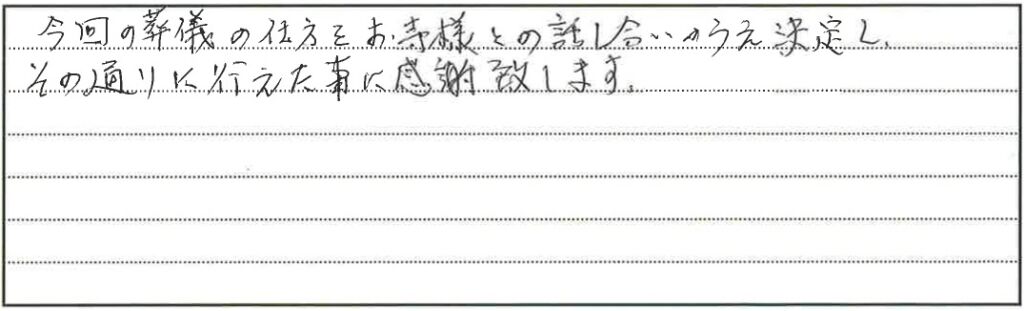 今回の葬儀の仕方をお寺様との話し合いのうえ決定し、
その通りに行えた事に感謝致します。